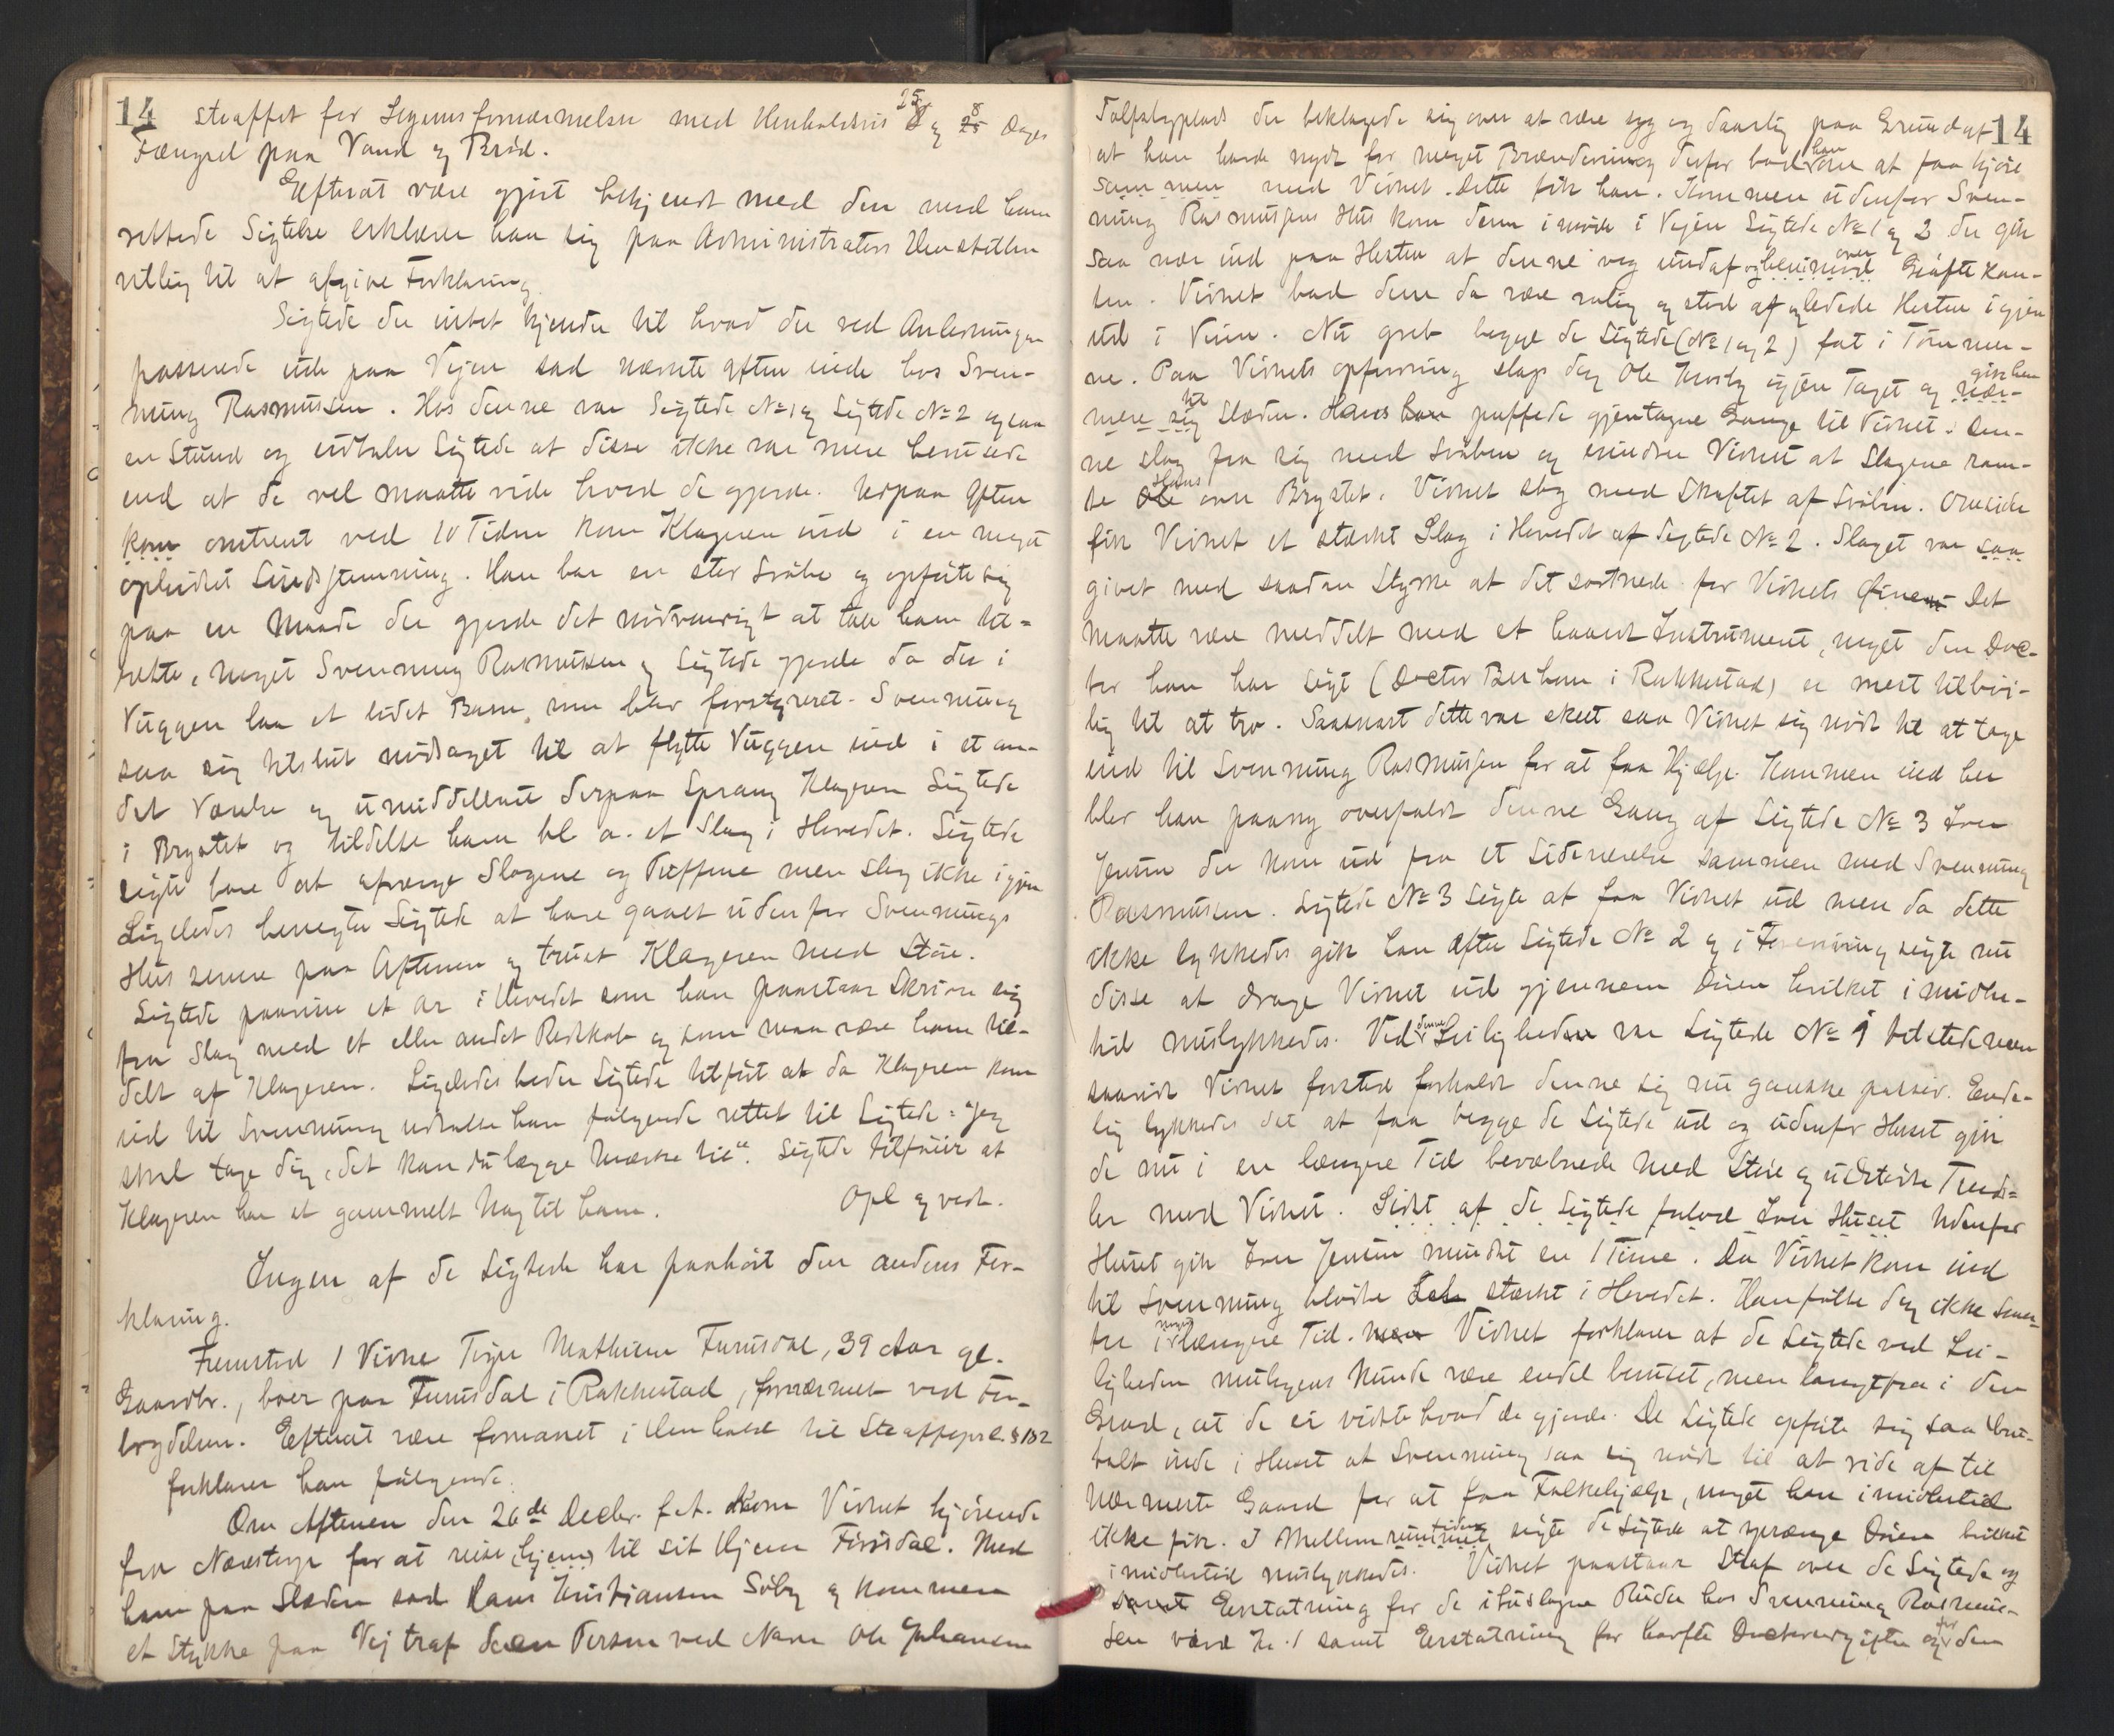 14 straffet for Legemsfornærmelse med Henholdsvis 25 og 8 Dages
Fængsel paa Vand og Brød.
Efterat være gjort bekjendt med den mod ham
rettede Sigtelse erklærer han sig paa Administrators Henstillen
villig til at afgive Forklaring.
Sigtede der intet kjender til hvad der ved Anledningen
passerede ude paa Vejen sad nævnte Aften inde hos Sven-
ning Rasmussen. Hos denne var Sigtede № 1 og Sigtede № 2 ogsaa
en Stund og udtaler Sigtede at disse ikke var mere berusede
end at de vel maatte vide hvad de gjorde. Udpaa Aften
kom omtrent ved 10 Tiden kom Klageren ind i en meget
ophidset Sindsstemning. Han bar en stor Svøbe og opførte sig
paa en Maade der gjorde det nødvendigt at tale ham til-
rette, noget Svenning Rasmussen og Sigtede gjorde da der i
Vuggen laa et lidet Barn som blev forstyrret. Svenning
saa sig tilslut nødsaget til at flytte Vuggen ind i et an-
det Værelse og umiddelbart derpaa sprang Klageren Sigtede
i Brystet og tildelte ham bl. a. et Slag i Hovedet. Sigtede
søgte bare at afværge Slagene og Puffene men slog ikke igjen
Ligeledes benegter Sigtede at have gaaet udenfor Svennings
Hus senere paa Aftenen og truet Klageren med Stør.
Sigtede paaviser et Ar i Hovedet som han paastaar skriver sig
fra Slag med et eller andet Redskab og som maa være ham til-
delt af Klageren. Ligeledes beder Sigtede tilført at da Klageren kom
ind til Svenning udtalte han følgende rettet til Sigtede: "Jeg
skal tage dig, det kan du lægge Mærke til". Sigtede tilføier at
Klageren har et gammelt Nag til ham. Opl og vedt.
Ingen af de Sigtede har paahørt den andens For-
klaring.
Fremstod 1 Vidne Mathisen Furusdal, 39 Aar gl.
Gaardbr., boer paa Furusdal i Rakkestad, fornærmet ved For-
brydelsen. Efterat være formanet i Henhold til Straffeprl. §
forklarer han følgende:
Om Aftenen den 26de Decbr. f.A. kom Vidnet kjørende
fra for at reise hjem til sit Hjem Med
ham paa Slæden sad Hans Kristiansen Søby og kommen
et Stykke paa Vej traf de en Person ved Navn Ole Johansen
14
der beklagede sig over at være syg og daarlig paa Grund af
at han havde nydt for meget Brændevin og derfor bad han om at faa kjøre
sammen med Vidnet. Dette fik han. Kommen udenfor Sven-
ning Rasmusens Hus kom dem i møde i Vejen Sigtede № 1 og 2 der gik
saa nær ind paa Hesten at denne veg undaf og henimod over Grøftekan-
ten. Vidnet bad dem da være rolig og stod af og ledede Hesten igjen
ud i Veien. Nu greb begge de Sigtede (№ 1 og 2) fat i Tømmer-
ne. Paa Vidnets opfordring slap dog Ole igjen Taget og gik hen nær-
mere sig til Slæden. Hans han puffede gjentagne Gange til Vidnet. Den-
ne slog fra sig med Svøben og erindrer Vidnet at Slagene ram-
te Ole Hans over Brystet. Vidnet slog med Skaftet af Svøben. Omsider
fik Vidnet et stærkt Slag i Hovedet af Sigtede № 2. Slaget var saa
givet med saadan Styrke at det sortnede for Vidnets Øine. Det
maatte være meddelt med et haardt Instrument, noget den Doc-
tor han har søgt (Doctor i Rakkestad) er mest tilbøi-
lig til at tro. Saasnart dette var skeet saa Vidnet sig nødt til at tage
ind til Svenning Rasmusen for at faa Hjælp. Kommen ind her
blev han paany overfaldt denne Gang af Sigtede № 3 Iver
Jensen der kom ud fra et Sideværelse sammen med Svenning
Rasmussen. Sigtede № 3 søgte at faa Vidnet ud men da dette
ikke lykkedes gik han efter Sigtede № 2 og i Forening søgte nu
disse at drage Vidnet ud gjennem Døren hvilket imidler-
tid mislykkedes. Ved denne Leilighed var Sigtede № 1 tilstede men
saavidt Vidnet forstod forholdt denne sig nu ganske passiv. Ende-
lig lykkedes det at faa begge de Sigtede ud og udenfor Huset gik
de nu i en længere Tid bevæbnede med Støre og udstødte Trud-
ler mod Vidnet. Sidst af de Sigtede forlod Iver Huset Udenfor
Huset gik Iver Jensen mindst en 1 Time. Da Vidnet kom ind
til Svenning blødte stærkt i Hovedet. Han følte dog ikke Smer-
ter i nogen længere Tid. Vidnet forklarer at de Sigtede ved Lei-
ligheden muligens kunde være endel beruset, men langtfra i den
Grad, at de ei vidste hvad de gjorde. De Sigtede opførte sig saa bru-
talt inde i Huset at Svenning saa sig nødt til at ride af til
nærmeste Gaard for at faa Folkehjælp, noget han imidlertid
ikke fik. I Mellemtiden søgte de Sigtede at sprænge Døren hvilket
imidlertid mislykkedes. Vidnet paastaar Straf over de Sigtede og
samt Erstatning for de ituslagne Ruder hos Svenning Rasmus-
sen værd Kr. 1 samt Erstatning for havte Doctorudgifter og for den